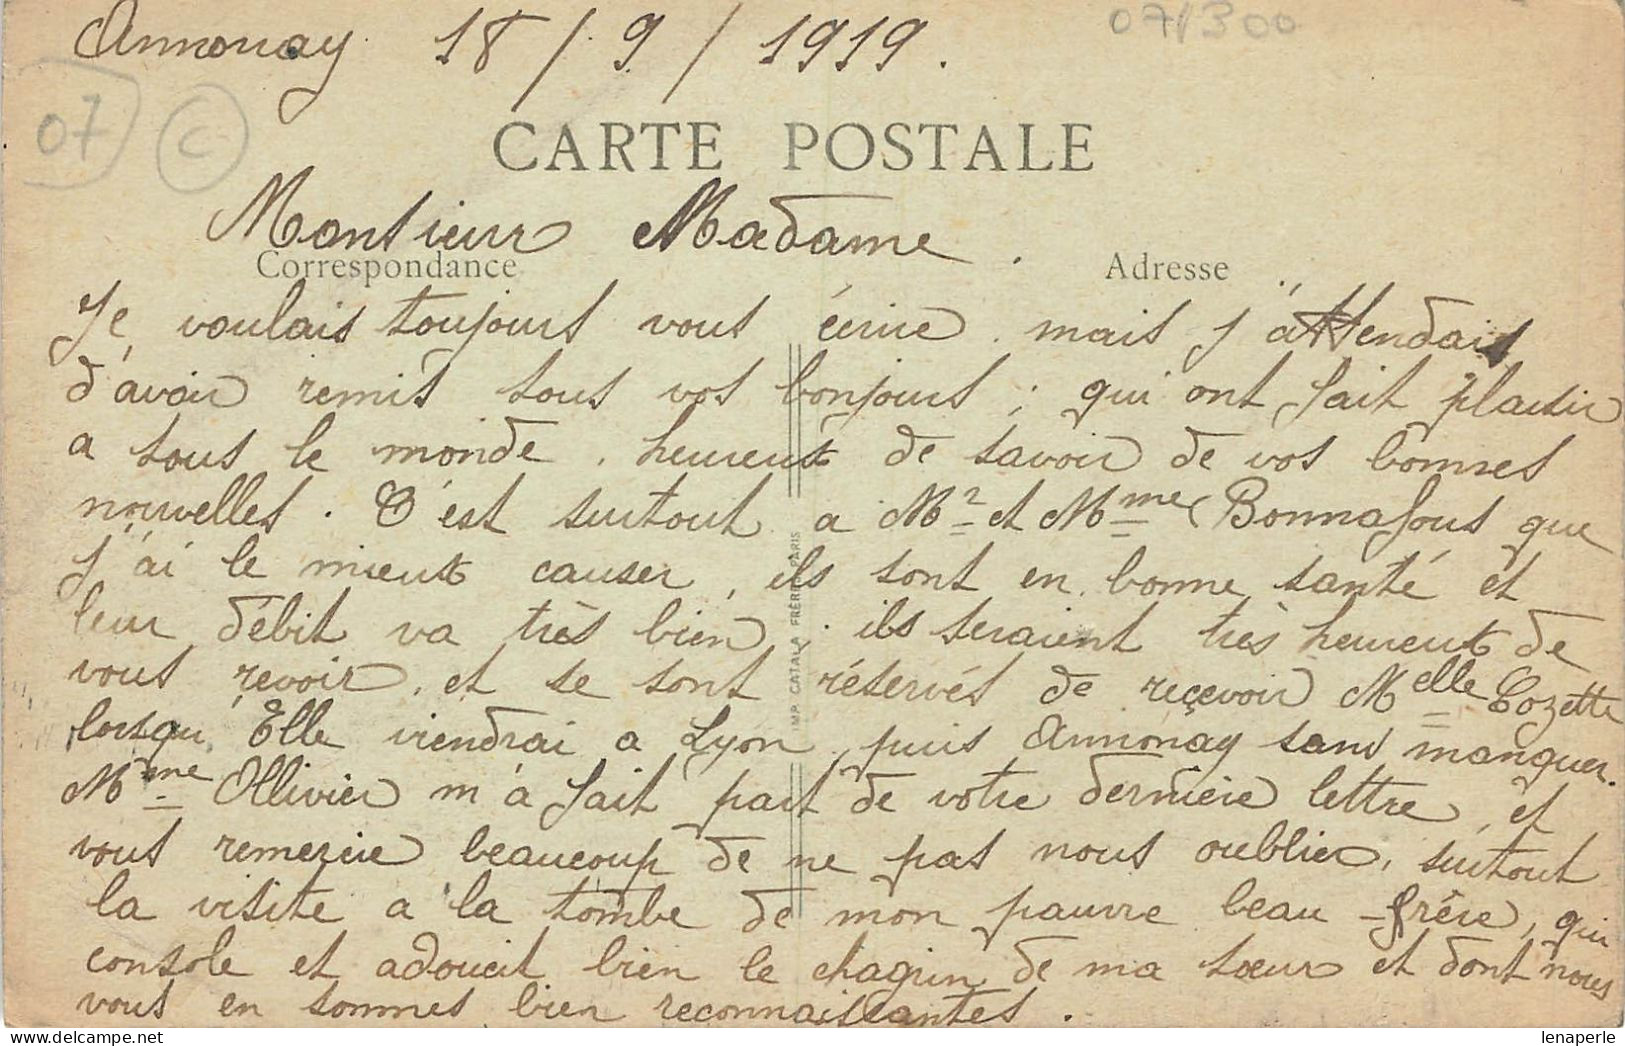 Annonay 18/9/1919.
07/300
07 C
CARTE POSTALE
Monsieur Madame.
Correspondance
Adresse
Je voulais toujours vous écrire. mais j'attendais
d'avoir remis tous vos bonjours; qui ont fait plaisir
a tous le monde. heureux de savoir de vos bonnes
nouvelles. C'est surtout a Mr et Mme Bonnafous que
j'ai le mieux causer, ils sont en bonne santé et
leur débit va très bien. ils seraient très heureux de
vous revoir, et se sont réservés de reçevoir Melle Cozette
lorsqu'Elle viendrai a Lyon, puis Annonay sans manquer.
Mme Ollivier m'a fait part de votre dernière lettre, et
vous remercie beaucoup de ne pas nous oublier, surtout
la visite a la tombe de mon pauvre beau-frère, qui
console et adoucit bien le chagrin de ma sœur et dont nous
vous en sommes bien reconnaissantes.
IMP. CATALA FRÈRES PARIS
lenaperle